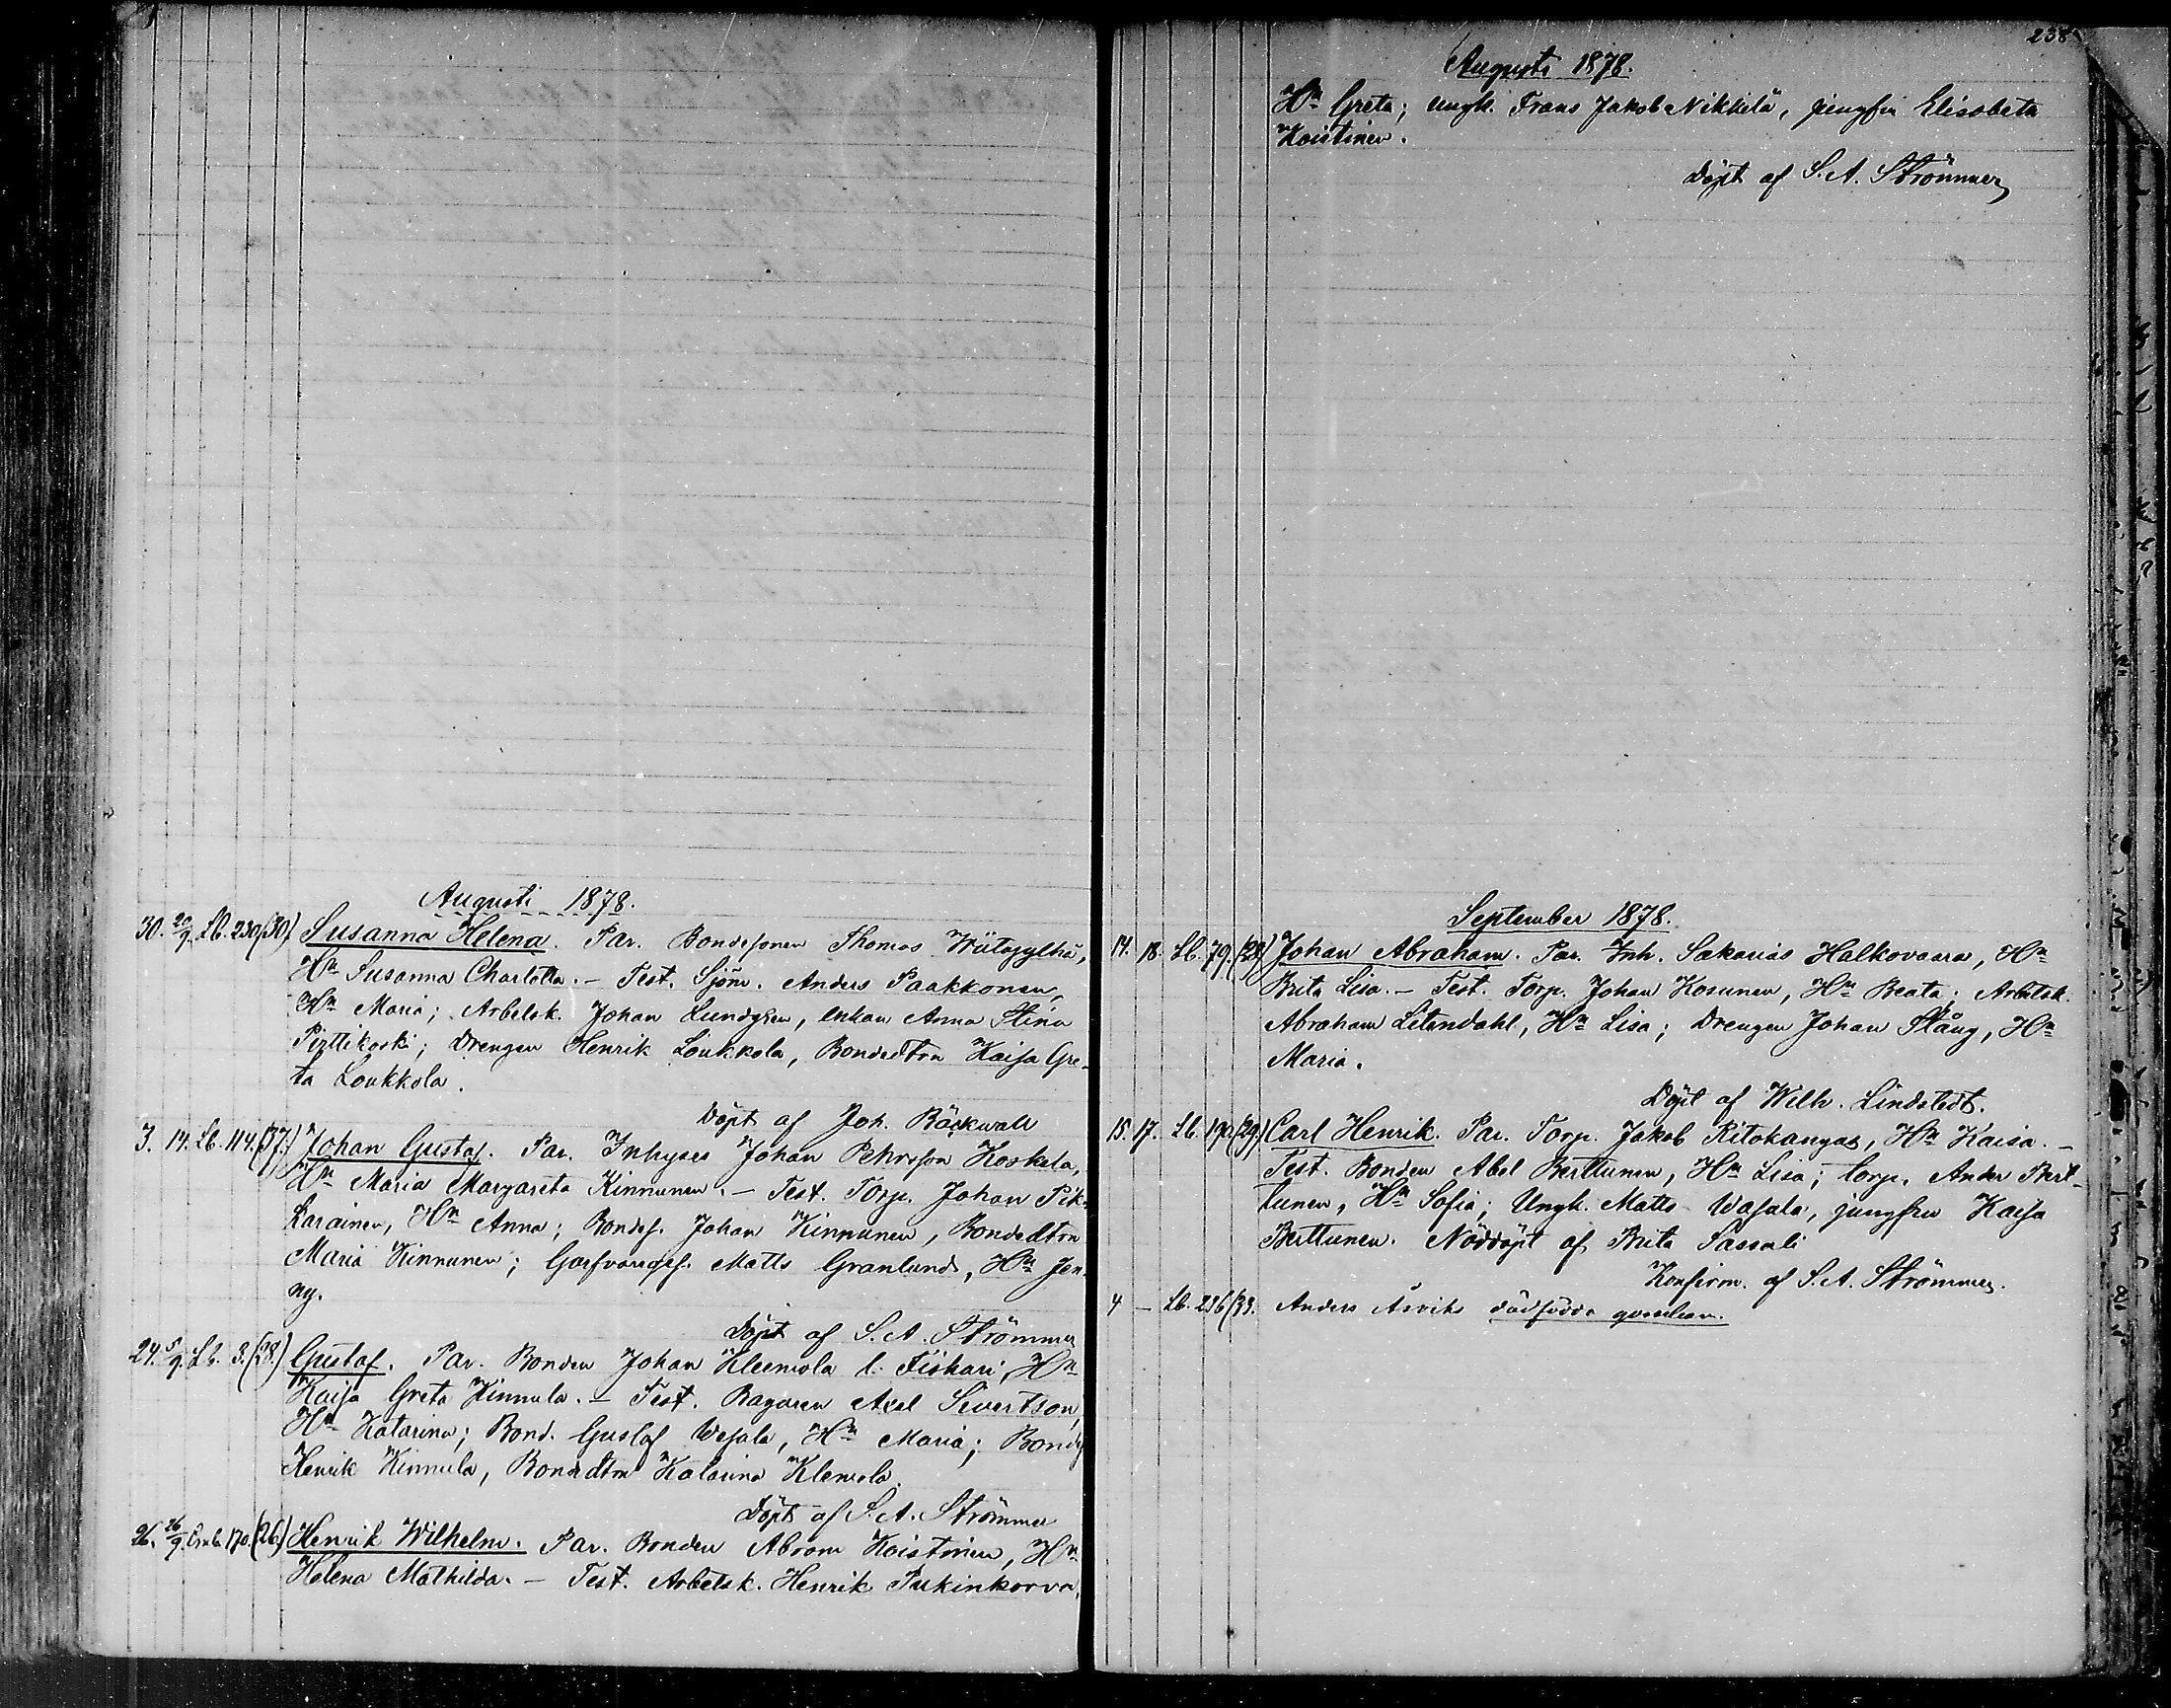 Augusti 1878.
30. 20/9. Lb. 230. (30.) Susanna Helena. Par. Bondesonen Thomas
Hn Susanna Charlotta. – Test. Sjöm. Anders Paakkonen,
Hn Maria; Arbetsk. Johan Lundgren, enkan Anna Stina
Pirttikoski; Drengen Henrik Loukkola, Bondedtrn Kaisa Gre-
ta Loukkola.
Döpt af Joh. Bäckwall
3. 14. Lb. 114. (37.) Johan Gustaf. Par. Inhyses Johan Pehrsson Koskela,
Hn Maria Margareta Kinnunen. – Test. Torp. Johan Pik-
karainen, Hn Anna; Bondes. Johan Kinnunen, Bondedtrn
Maria Kinnunen; Garfvaregs. Matts Granlund, Hn Jen-
ny.
Döpt af S. A. Strömmer
24. 5/9. Lb. 3. (28.) Gustaf. Par. Bonden Johan Kleemola l. Fiskari, Hn
Kaisa Greta Kinnula. – Test. Bagaren Axel Sivertson,
Hn Katarina; Bond. Gustaf Wasala, Hn Maria; Bondes
Henrik Kinnula, Bondedtrn Katarina Klemola.
Döpt af S. A. Strömmer
26. 26/9. 170. (26.) Henrik Wilhelm. Par. Bonden Abram Koistinen, Hn
Helena Mathilda. – Test. Arbetsk. Henrik Pukinkorva,
238
Augusti 1878.
Hn Greta; ungk. Frans Jakob Nikkilä, jungfru Elisabeta
Koistinen.
Döpt af S. A. Strömmer
September 1878.
14. 18. Lb. 79. (28.) Johan Abraham. Par. Inh. Sakarias Halkovaara, Hn
Brita Lisa. – Test. Torp. Johan Kosunen, Hn Beata; Arbetsk.
Abraham Litendahl, Hn Lisa; Drengen Johan Stång, Hn
Maria.
Döpt af Wilh. Lindstedt.
15. 17. Lb. 192. (29.) Carl Henrik. Par. Torp. Jakob Ritokangas, Hn Kaisa. –
Test. Bonden Abel Berttunen, Hn Lisa; torp. Ander Bert-
tunen, Hn Sofia; Ungk. Matts Wasala, jungfru Kaisa
Berttunen. Nöddöpt af Brita Sassali
Konfirm. af S. A. Strömmer.
4 – Lb. 236 (33. Anders Åsviks dödfödda gossebarn.